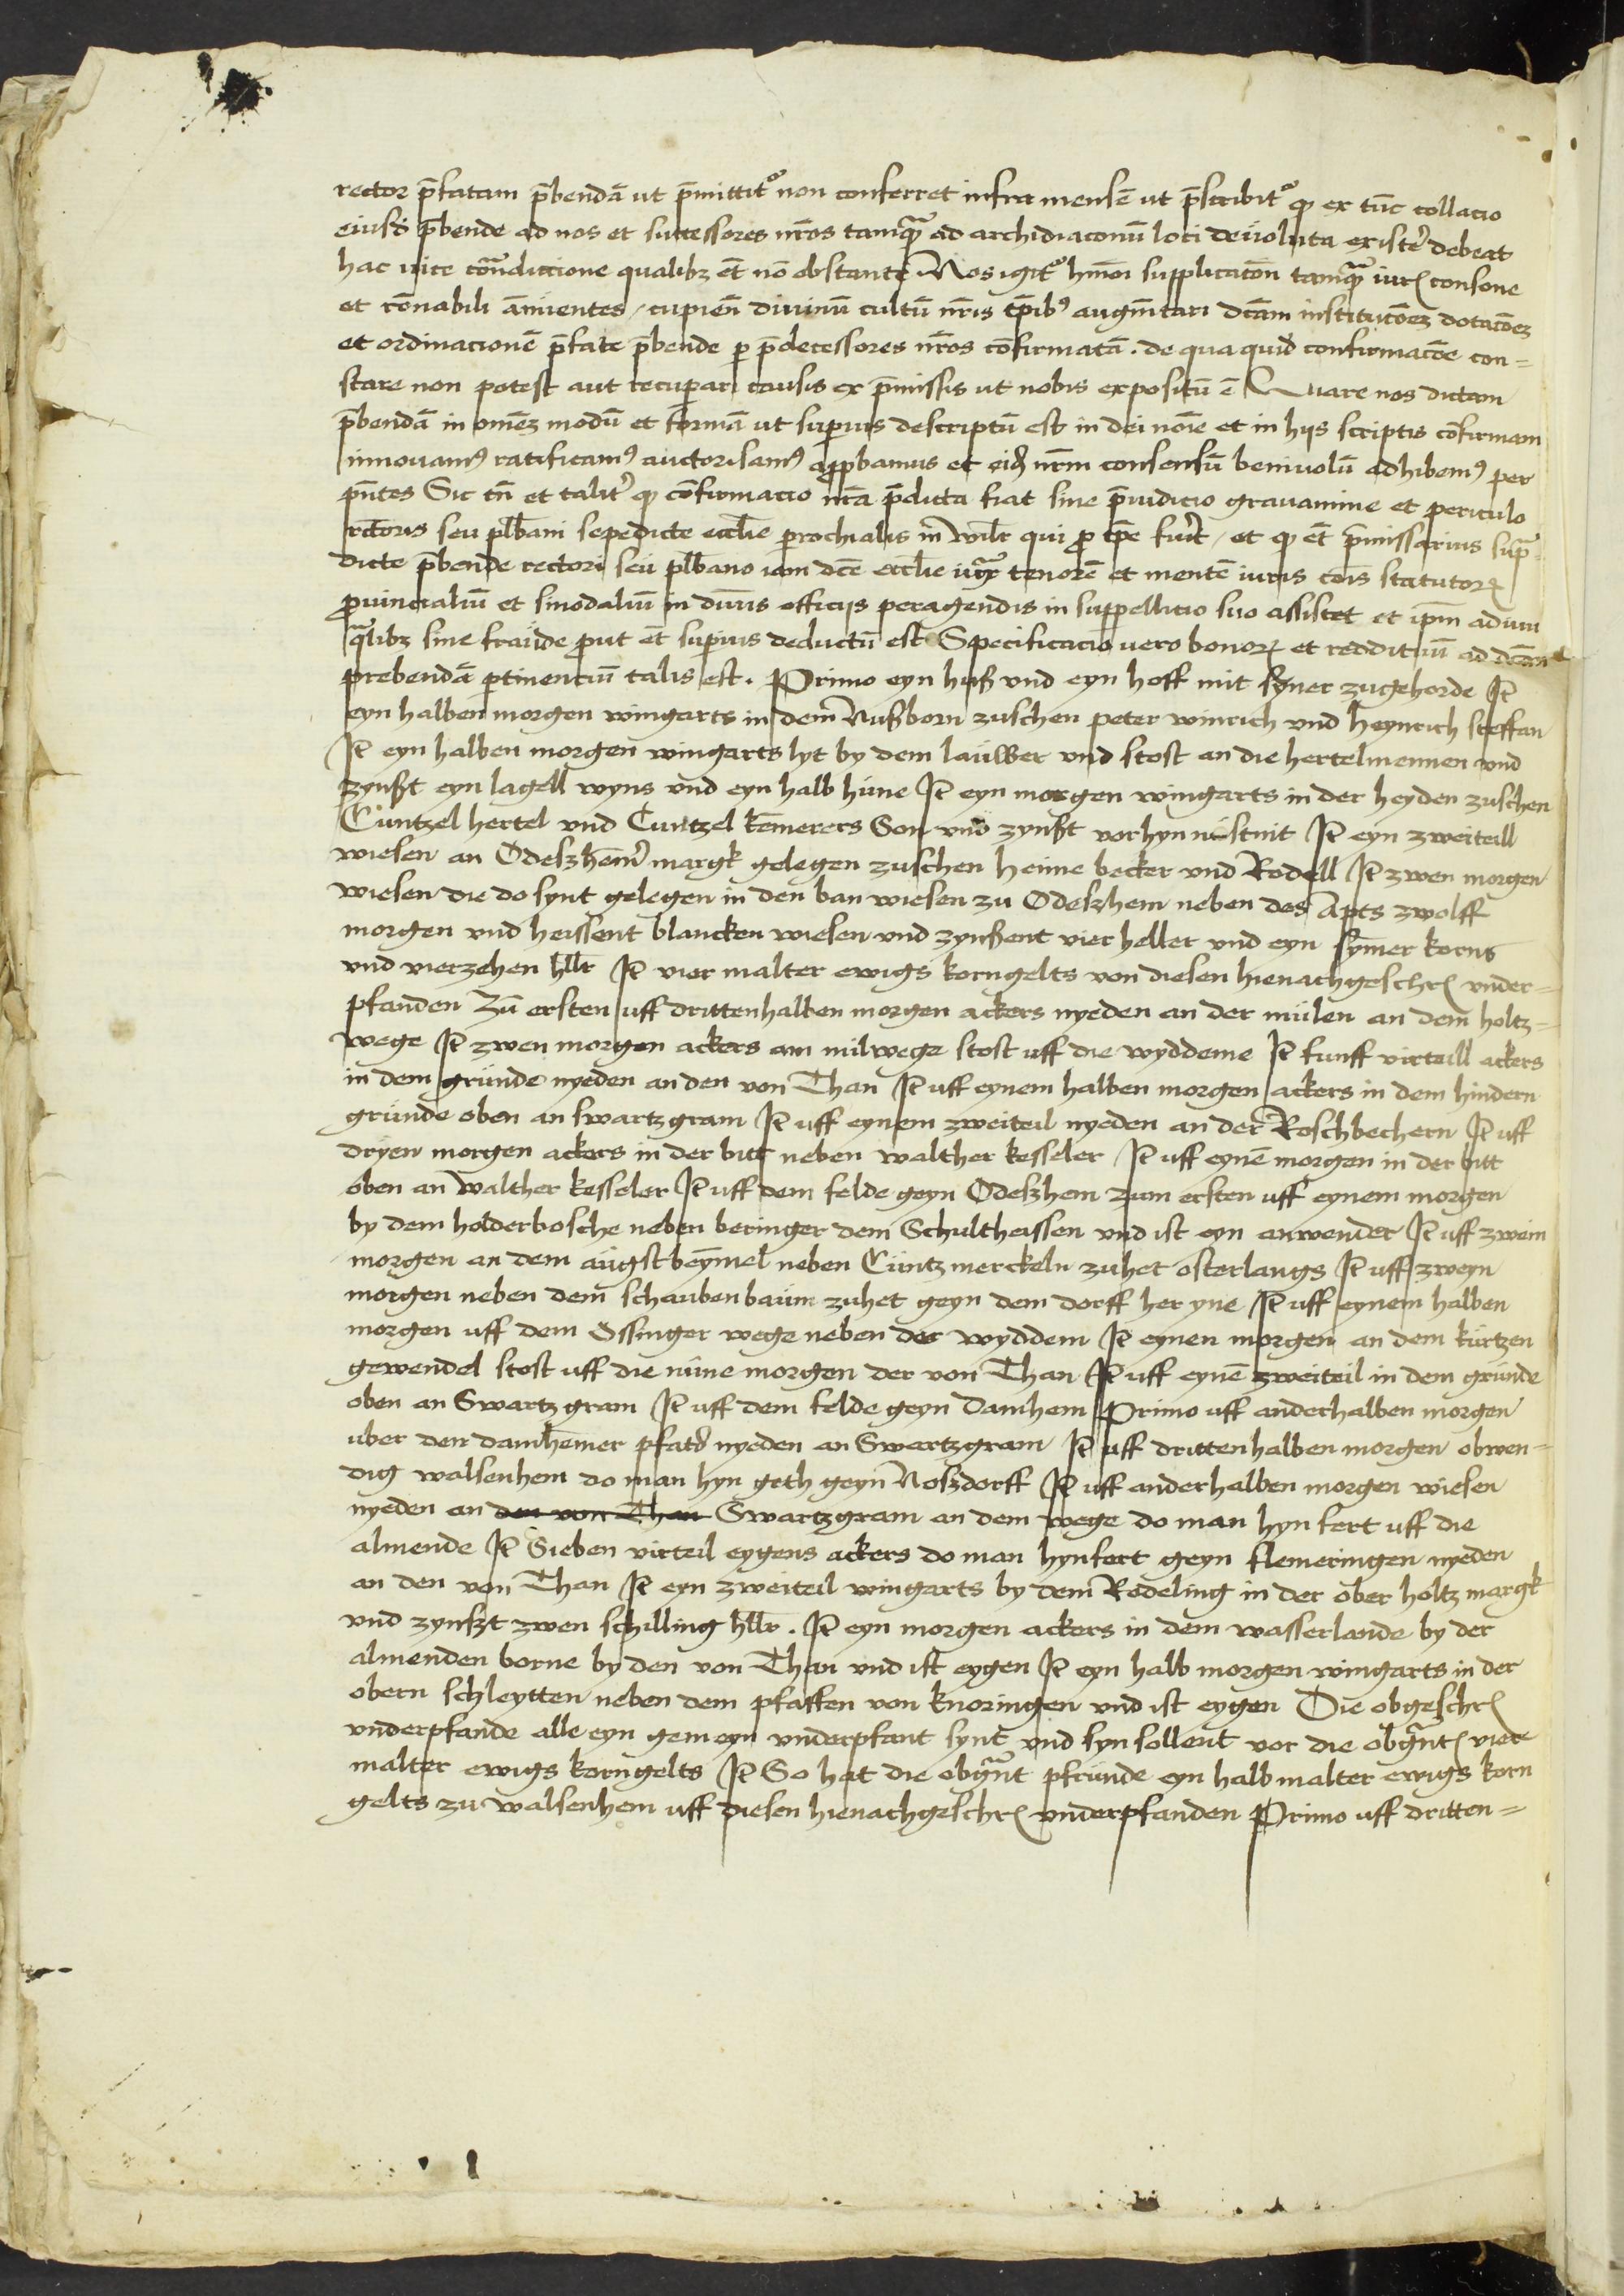 rector p̄fatam p̄bendā ut p̄mittit᷑ non conferret infra mensē ut p̄scribit᷑ ꝙ ex tūc collacio
eiusd̄ p̄bende ad nos et successores nr̄os tamqᷓ ad archidiaconū loci deuoluta existe᷑ debeat
hac vice cont᷑dictione qualibꝫ et̄ nō obstante Nos igit᷑ hmōi supplicacōn tamqᷓ iurꝭ consone
et rōnabili ānuentes / cupien̄ diuinū cultū nr̄is tp̄ibꝰ augm̄tari dc̄am institucōeꝫ dotacōeꝫ
et ordinacionē p̄fate p̄bende ꝑ p̄decessores nr̄os cōfirmatā . de qua quid̄ confirmacōe con=
stare non potest aut recuꝑari causis ex p̄missis ut nobis expositū ē Quare nos dictam
p̄bendā in omēꝫ modū et formā ut suꝑius descriptū est in dei noīe et in hijs scriptis cōfirmam
innouamꝰ ratificamꝰ auctorisamꝰ apꝓbamus et eid̄ nr̄m consensū beniuolū adhibemꝰ per
pn̄tes Sic tn̄ et talit᷑ ꝙ cōfirmacio nr̄a p̄dicta fiat sine p̄iudicio grauamine et periculo
rc̄oris seu pl̄bani sepedicte eccl̄ie ꝑrochialis in wilr̄ qui ꝓ tp̄e fu᷑it / et ꝙ et̄ p̄missarius sup̄=
dicte p̄bende rectori seu pl̄bano iam dc̄e eccl̄ie iuxᷓ tenorē et mentē iuris cōis statutorꝝ
ꝓuincialiū et sinodaliū in diuīs officijs peragendis in suppellicio suo assistet et ip̄m adiuu
qᷓlibꝫ sine fraude ꝓut et̄ suꝑius deductū est Specificacio vero bonorꝝ et reddituū ad dc̄am
prebendā ꝑtinenciū talis est . Primo eyn huß vnd eyn hoff mit syner zugehorde Jt̄
eyn halben morgen wingarts in dem Nußborn zuschen peter winrich vnd heynrich steffan
Jt̄ eyn halben morgen wingarts lyt by dem lauwer vnd stost an die hertelmennen vnd
zynßt eyn lagell wyns vnd eyn halb hune Jt̄ eyn morgen wingarts in der heyden zuschen
Cuntzel hertel vnd Cuntzel kēmerers Son vnd zynßt vorhyn nustnit Jt̄ eyn zweiteill
wiesen an Odeszhēm᷑ margk gelegen zuschen heine becker vnd Rodell Jt̄ zwen morgen
wiesen die do synt gelegen in den ban wiesen zu Odeszhem neben des Apts zwolff
morgen vnd heissent blancken wiesen vnd zynßent vier heller vnd eyn symer korns
vnd vierzehen hllr̄ Jt̄ vier malter ewigs korngelts von diesen hienachgeschrꝭ vnder=
pfanden Zū ersten uff drittenhalben morgen ackers nyeden an der mülen an dem holtz=
wege Jt̄ zwen morgen ackers am milwege stost uff die wyddeme Jt̄ funff virteill ackers
in dem grunde nyeden an den von Than Jt̄ uff eynem halben morgen ackers in dem hindern
grunde oben an swartzgram Jt̄ uff eynem zweiteil nyeden an der Roschbechern Jt̄ uff
dryen morgen ackers in der bitt neben walther kesseler Jt̄ uff eynē morgen in der bitt
oben an walther kesseler Jt̄ uff dem felde geyn Odeszhem zum ersten uff eynem morgen
by dem holderbosche neben beringer dem Schultheissen vnd ist eyn anwender Jt̄ uff zwein
morgen an dem augstbeymel neben Cuntz merckeln zuhet osterlangs Jt̄ uff zweyn
morgen neben dem schaubenbaum zuhet geyn dem dorff her yne Jt̄ uff eynem halben
morgen uff dem Ossinger wege neben der wyddem Jt̄ eynen morgen an dem kurtzen
gewendel stost uff die nüne morgen der von Than Jt̄ uff eynē zweiteil in dem grunde
oben an Swartzgram Jt̄ uff dem felde geyn Damhem Primo uff anderhalben morgen
uber den damhēmer pfad᷑ nyeden an Swartzgram Jt̄ uff drittenhalben morgen obwen=
dig walsenhem do man hyn geth geyn Noszdorff Jt̄ uff anderhalben morgen wiesen
nyeden an den von Than Swartzgram an dem wege do man hyn fert uff die
almende Jt̄ Sieben virteil eygens ackers do man hynfert geyn flemeringen nyeden
an den von Than Jt̄ eyn zweiteil wingarts by dem Rodeling in der ober holtz margk
vnd zynßzt zwen schilling hllr̄ . Jt̄ eyn morgen ackers in dem wasserlande by der
almenden borne by den von Than vnd ist eygen Jt̄ eyn halb morgen wingarts in der
obern schleytten neben dem pfaffen von knoringen vnd ist eygen Die obgeschrꝭ
vnderpfande alle eyn gemeyn vnderpfant synt vnd syn sollent vor die obgn̄tꝭ vier
malter ewigs korngelts Jt̄ So hat die obgn̄nt pfrunde eyn halb malter ewigs korn
gelts zu walsenhem uff diesen hienachgeschrꝭ vnderpfanden Primo uff dritten=